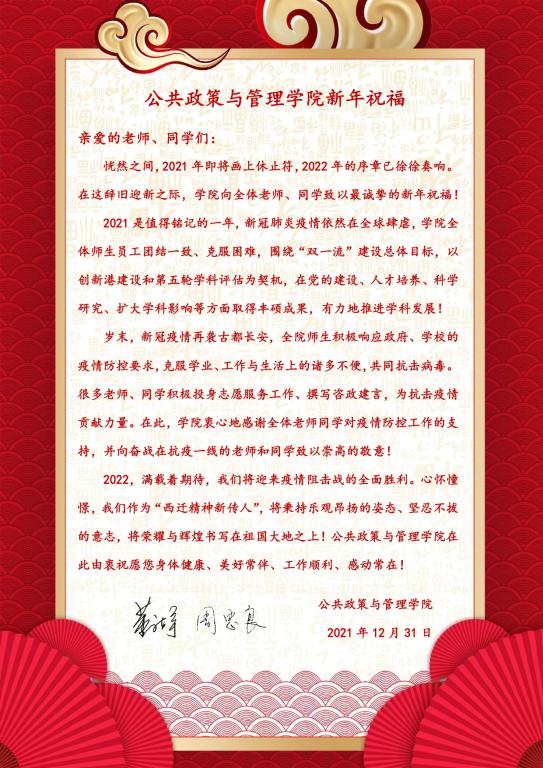 公共政策与管理学院新年祝福
亲爱的老师、同学们：
恍然之间,2021年即将画上休止符,2022年的序章已徐徐奏响。
在这辞旧迎新之际，学院向全体老师、同学致以最诚挚的新年祝福！
2021是值得铭记的一年，新冠肺炎疫情依然在全球肆虐,学院全
体师生员工团结一致、克服困难，围绕“双一流”建设总体目标，以
创新港建设和第五轮学科评估为契机，在党的建设、人才培养、科学
研究、扩大学科影响等方面取得丰硕成果，有力地推进学科发展！
岁末，新冠疫情再袭古都长安，全院师生积极响应政府、学校的
疫情防控要求,克服学业、工作与生活上的诸多不便,共同抗击病毒。
很多老师、同学积极投身志愿服务工作、撰写咨政建言，为抗击疫情
贡献力量。在此，学院衷心地感谢全体老师同学对疫情防控工作的支
持，并向奋战在抗疫一线的老师和同学致以崇高的敬意！
2022，满载着期待，我们将迎来疫情阻击战的全面胜利。心怀憧
憬，我们作为“西迁精神新传人”，将秉持乐观昂扬的姿态、坚忍不拔
的意志，将荣耀与辉煌书写在祖国大地之上！公共政策与管理学院在
此由衷祝愿您身体健康、美好常伴、工作顺利、感动常在！
公共政策与管理学院
周忠良
2021年12月31日